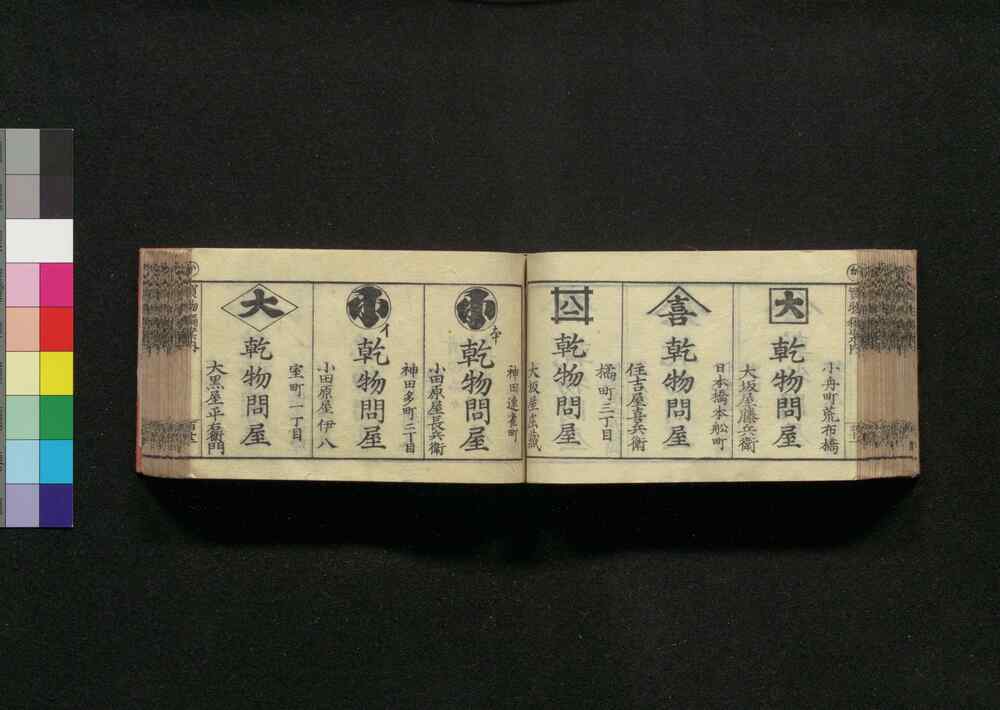 小舟町荒布橋
大
乾物問屋
大坂屋藤兵衛
日本橋本舩町
喜
乾物問屋
住吉屋喜兵衛
橘町三丁目
八
乾物問屋
大坂屋庄蔵
神田連雀町
小
乾物問屋
小田原屋長兵衛
神田多町二丁目
小
イ
乾物問屋
小田原屋伊八
室町一丁目
大
乾物問屋
大黒屋平右衛門